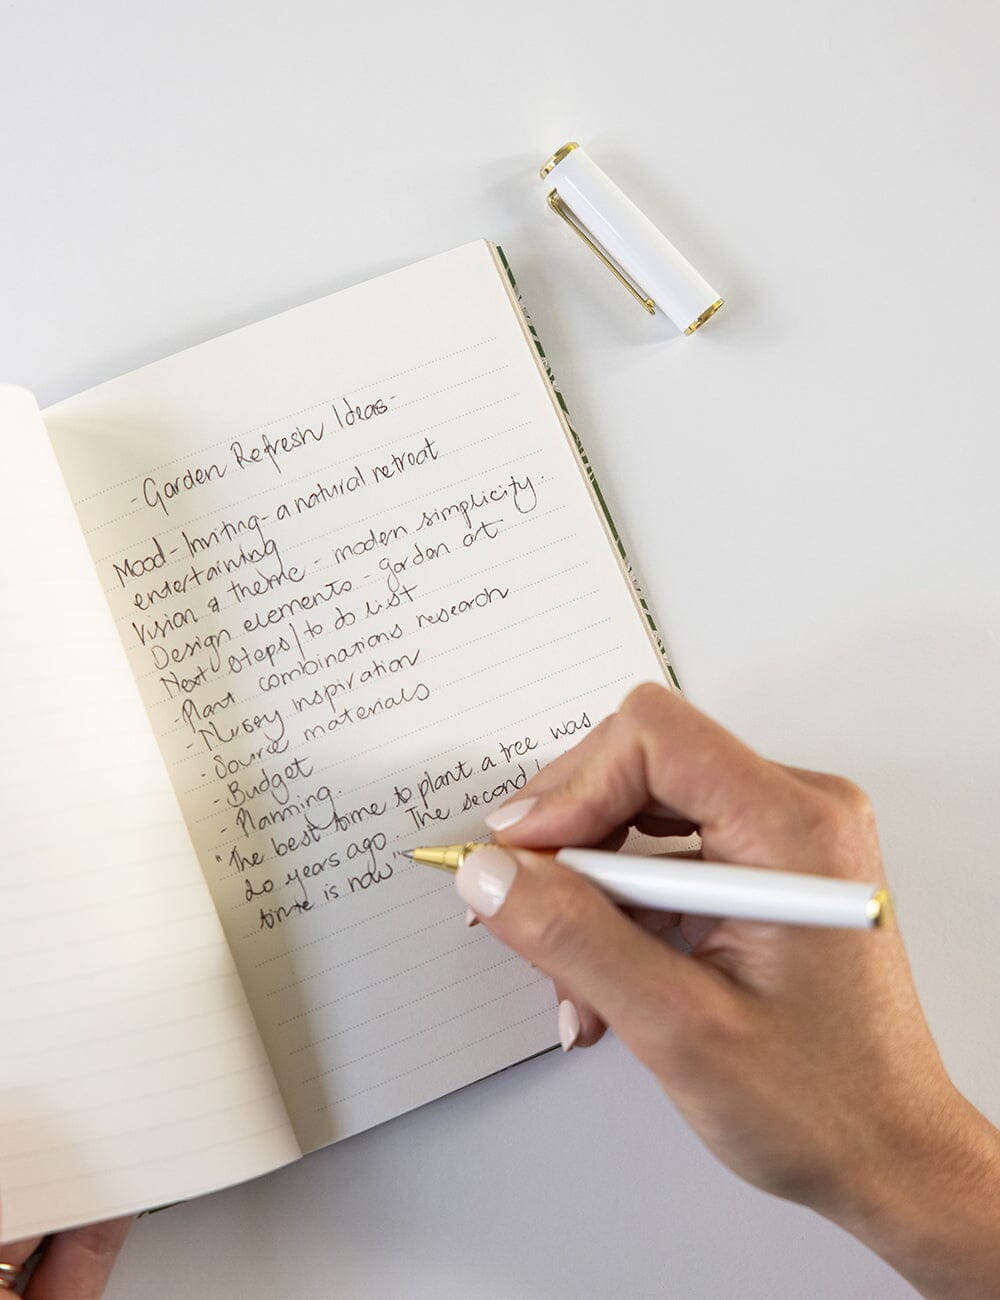 - Garden Refresh Ideas-
Mood - Inviting - a natural retreat
entertaining
Vision & theme - modern simplicity.
Design elements - garden art
Next steps/to do list
- Plant combinations research
- Nursery inspiration
- Source materials
- Budget
- Planning.
"The best time to plant a tree was
20 years ago. The second
time is now"